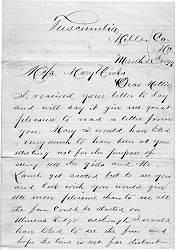 Tuscumbia
Miller Co.
Mo
March
Miss Mary
Dear Mollie
I received your letter to day
and will say it give me great
pleasure to read a letter from
you. Mary I would have liked
very much to have been at you
meeting not for the purpose of
seeing all the girls and Mr
Lamb get sacked but to see you
and talk with you would give
me more pleasure than to see all
the fun could be started on
Ridge although I would
have liked to see the fun and
hope the time is not far distant